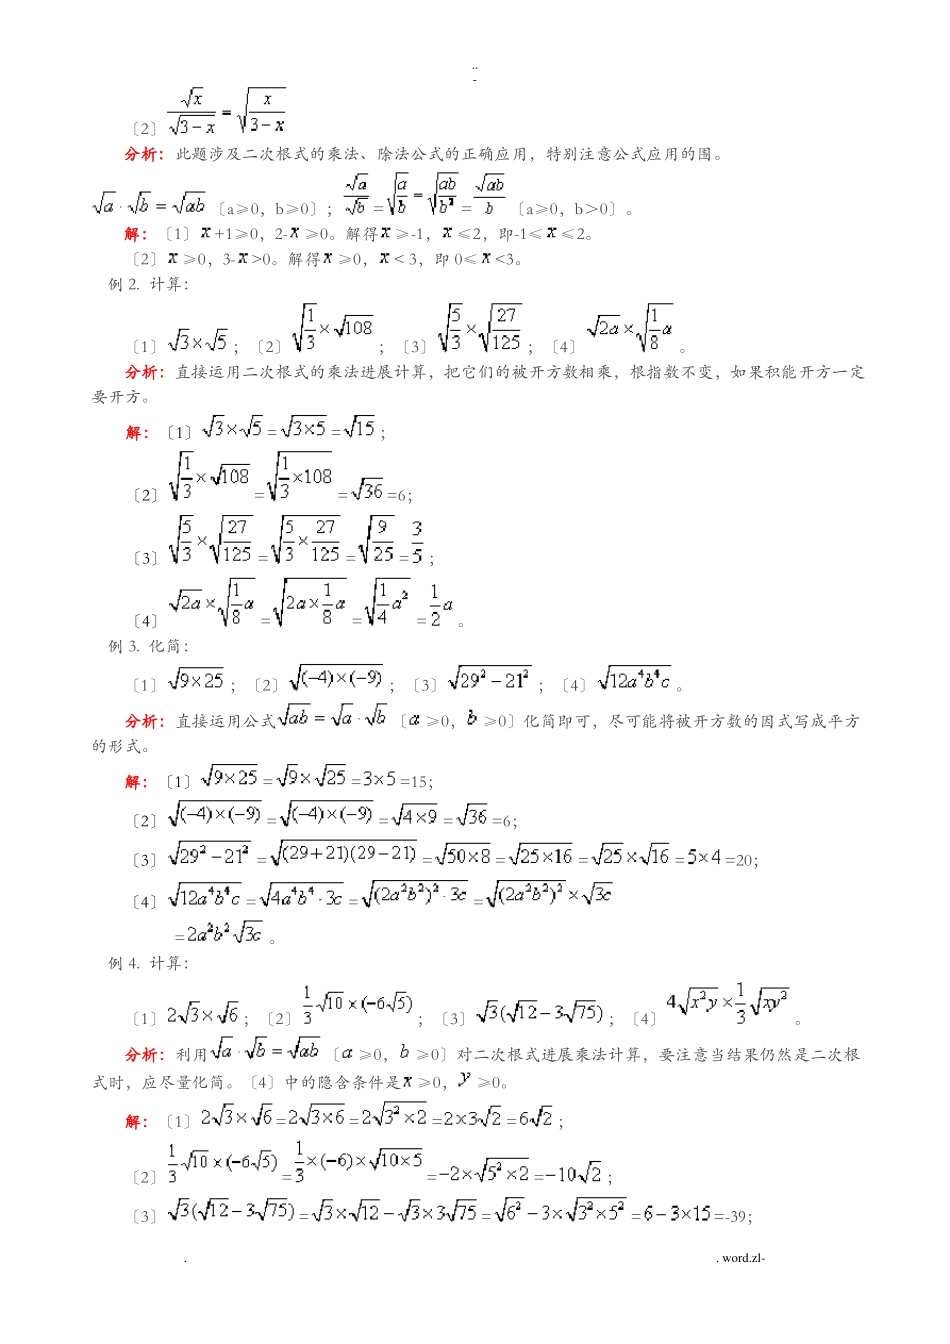 ..
-
〔2〕√x/√(3−x) = √(x/(3−x))
分析：此题涉及二次根式的乘法、除法公式的正确应用，特别注意公式应用的围。
√a·√b=√ab〔a≥0，b≥0〕；√a/√b=√(a/b)=√(ab/b²)=√ab/b〔a≥0，b>0〕。
解：〔1〕x+1≥0，2-x≥0。解得x≥-1，x≤2，即-1≤x≤2。
〔2〕x≥0，3-x>0。解得x≥0，x<3，即 0≤x<3。
例 2. 计算：
〔1〕√3×√5；〔2〕√(1/3)×√108；〔3〕√(5/3)×√(27/125)；〔4〕√2a×√(1/8 a)。
分析：直接运用二次根式的乘法进展计算，把它们的被开方数相乘，根指数不变，如果积能开方一定
要开方。
解：〔1〕√3×√5=√(3×5)=√15；
〔2〕√(1/3)×√108=√(1/3×108)=√36=6；
〔3〕√(5/3)×√(27/125)=√(5/3×27/125)=√(9/25)=3/5；
〔4〕√2a×√(1/8 a)=√(2a×1/8 a)=√(1/4 a²)=1/2 a。
例 3. 化简：
〔1〕√(9×25)；〔2〕√((−4)×(−9))；〔3〕√(29²−21²)；〔4〕√(12a⁴b⁴c)。
分析：直接运用公式√ab=√a·√b〔a≥0，b≥0〕化简即可，尽可能将被开方数的因式写成平方
的形式。
解：〔1〕√(9×25)=√9×√25=3×5=15；
〔2〕√((−4)×(−9))=√((−4)×(−9))=√(4×9)=√36=6；
〔3〕√(29²−21²)=√((29+21)(29−21))=√(50×8)=√(25×16)=√25×√16=5×4=20；
〔4〕√(12a⁴b⁴c)=√(4a⁴b⁴·3c)=√((2a²b²)²·3c)=√((2a²b²)²)×√3c
=2a²b²√3c。
例 4. 计算：
〔1〕2√3×√6；〔2〕1/3√10×(−6√5)；〔3〕√3(√12−3√75)；〔4〕4√(x²y)×1/3√(xy²)。
分析：利用√a·√b=√ab〔a≥0，b≥0〕对二次根式进展乘法计算，要注意当结果仍然是二次根
式时，应尽量化简。〔4〕中的隐含条件是x≥0，y≥0。
解：〔1〕2√3×√6=2√(3×6)=2√(3²×2)=2×3√2=6√2；
〔2〕1/3√10×(−6√5)=1/3×(−6)×√(10×5)=−2×√(5²×2)=−10√2；
〔3〕√3(√12−3√75)=√3×√12−√3×3√75=√6²−3×√(3²×5²)=6−3×15=-39；
. . word.zl-